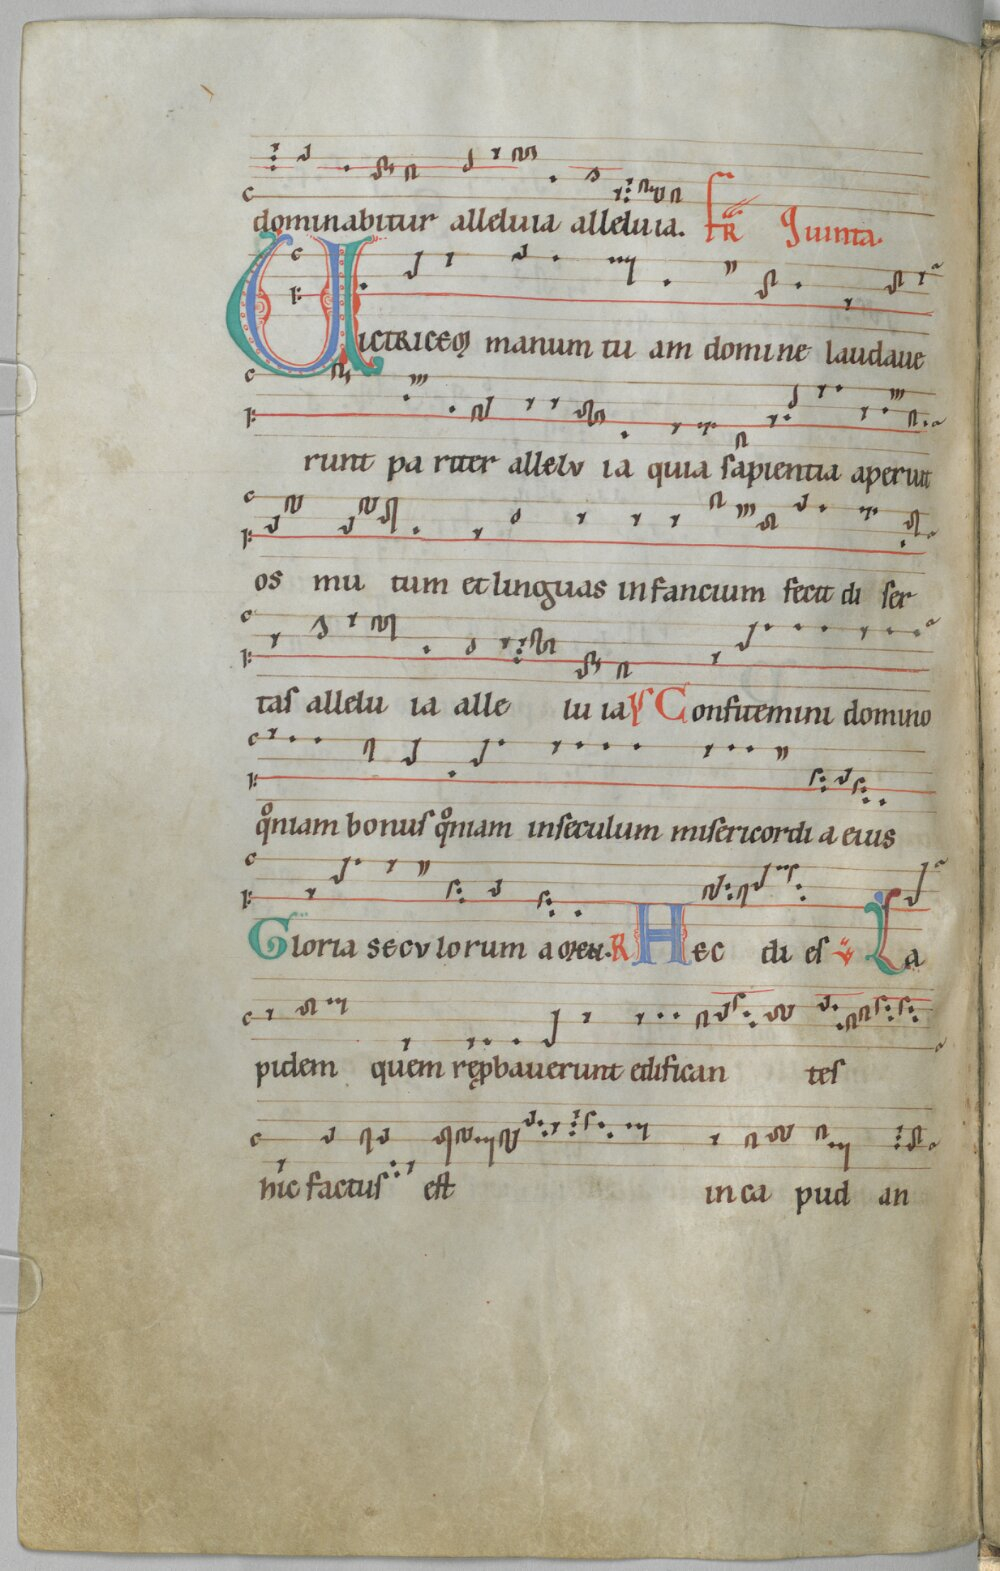 dominabitur alleluia alleluia. FR Quinta.
Uictricem manum tu am domine laudaue
runt pa riter allelu ia quia sapientia aperuit
os mu tum et linguas infancium fecit di ser
tas allelu ia alle lu ia V Confitemini domino
qoniam bonus qoniam in seculum misericordi a eius
Gloria secu lorum amen. R Hec di es V La
pidem quem reprobauerunt edifican tes
hic factus est in ca pud an